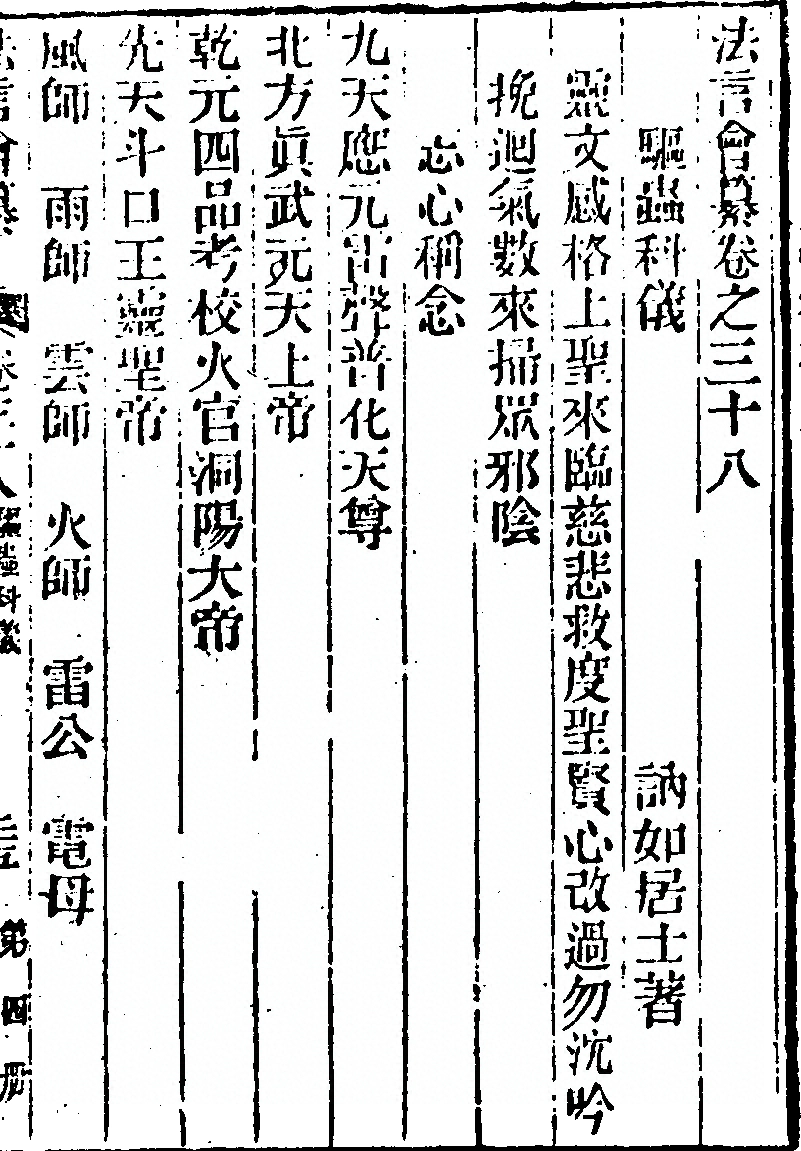 法言會纂卷之三十八
驅蟲科儀 訥如居士著
靈文感格上聖來臨慈悲救度聖賢心改過勿沈吟
挽迴氣數來掃眾邪陰
志心稱念
九天應元雷聲普化天尊
北方眞武元天上帝
乾元四品考校火官洞陽大帝
先天斗口王靈聖帝
風師 雨師 雲師 火師 雷公 電母
法言會纂 卷三十八 驅蟲科儀 第四册